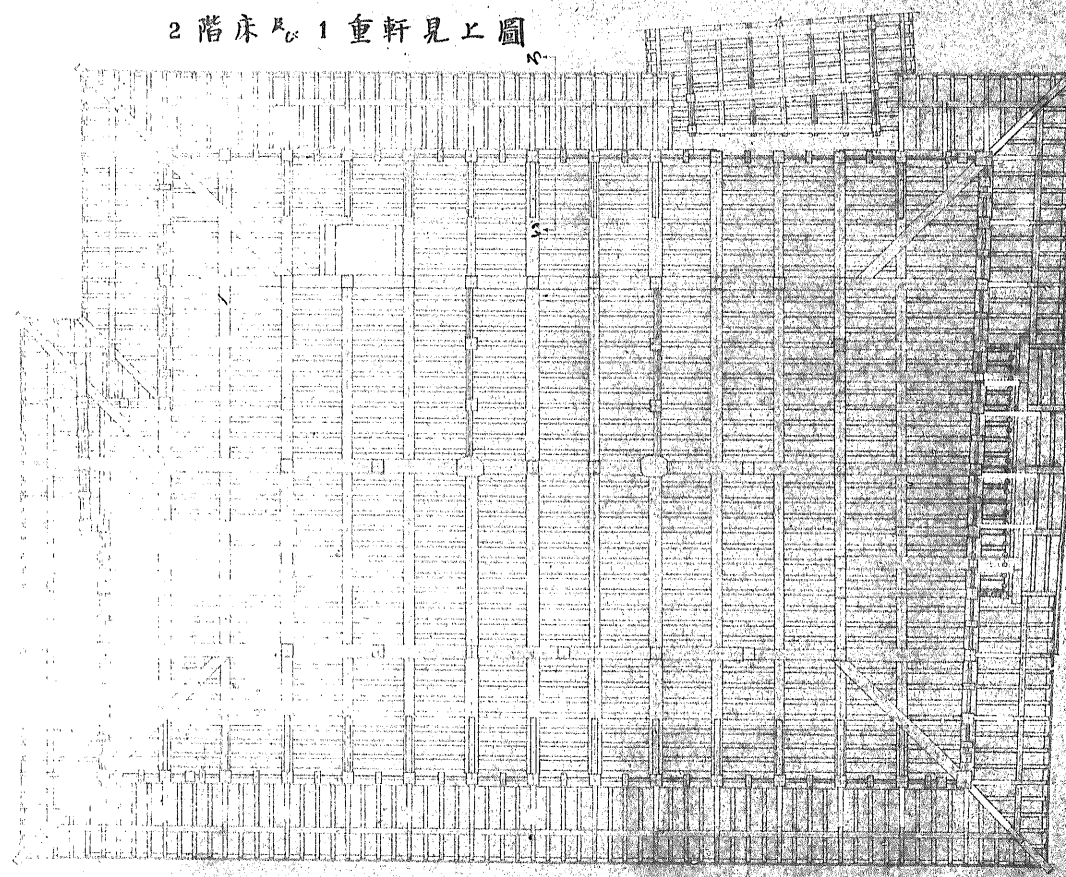 2階床及び1重軒見上圖
ろ
い